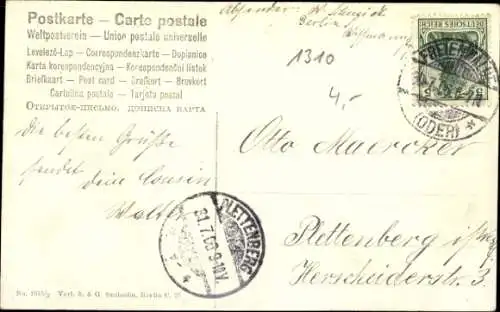 Postkarte – Carte postale
Weltpostverein – Union postale universelle
Levelező-Lap – Correspondenzkarte – Dopisnice
Karta korespondencyjna – Korespondenční lístek
Briefkaart – Post card – Brefkort – Brevkort
Cartolina postale – Tarjeta postal
Открытое-письмо.
Absender:
Berlin
1310
4,-
DEUTSCHES REICH
5
(ODER) *
Die besten Grüße
sendet dein Cousin
Walter
Otto Maercker
Plettenberg i/
Herscheiderstr. 3.
PLETTENBERG
31.7.06 9-10V.
Verl. S. & G. Saulsohn, Berlin C.